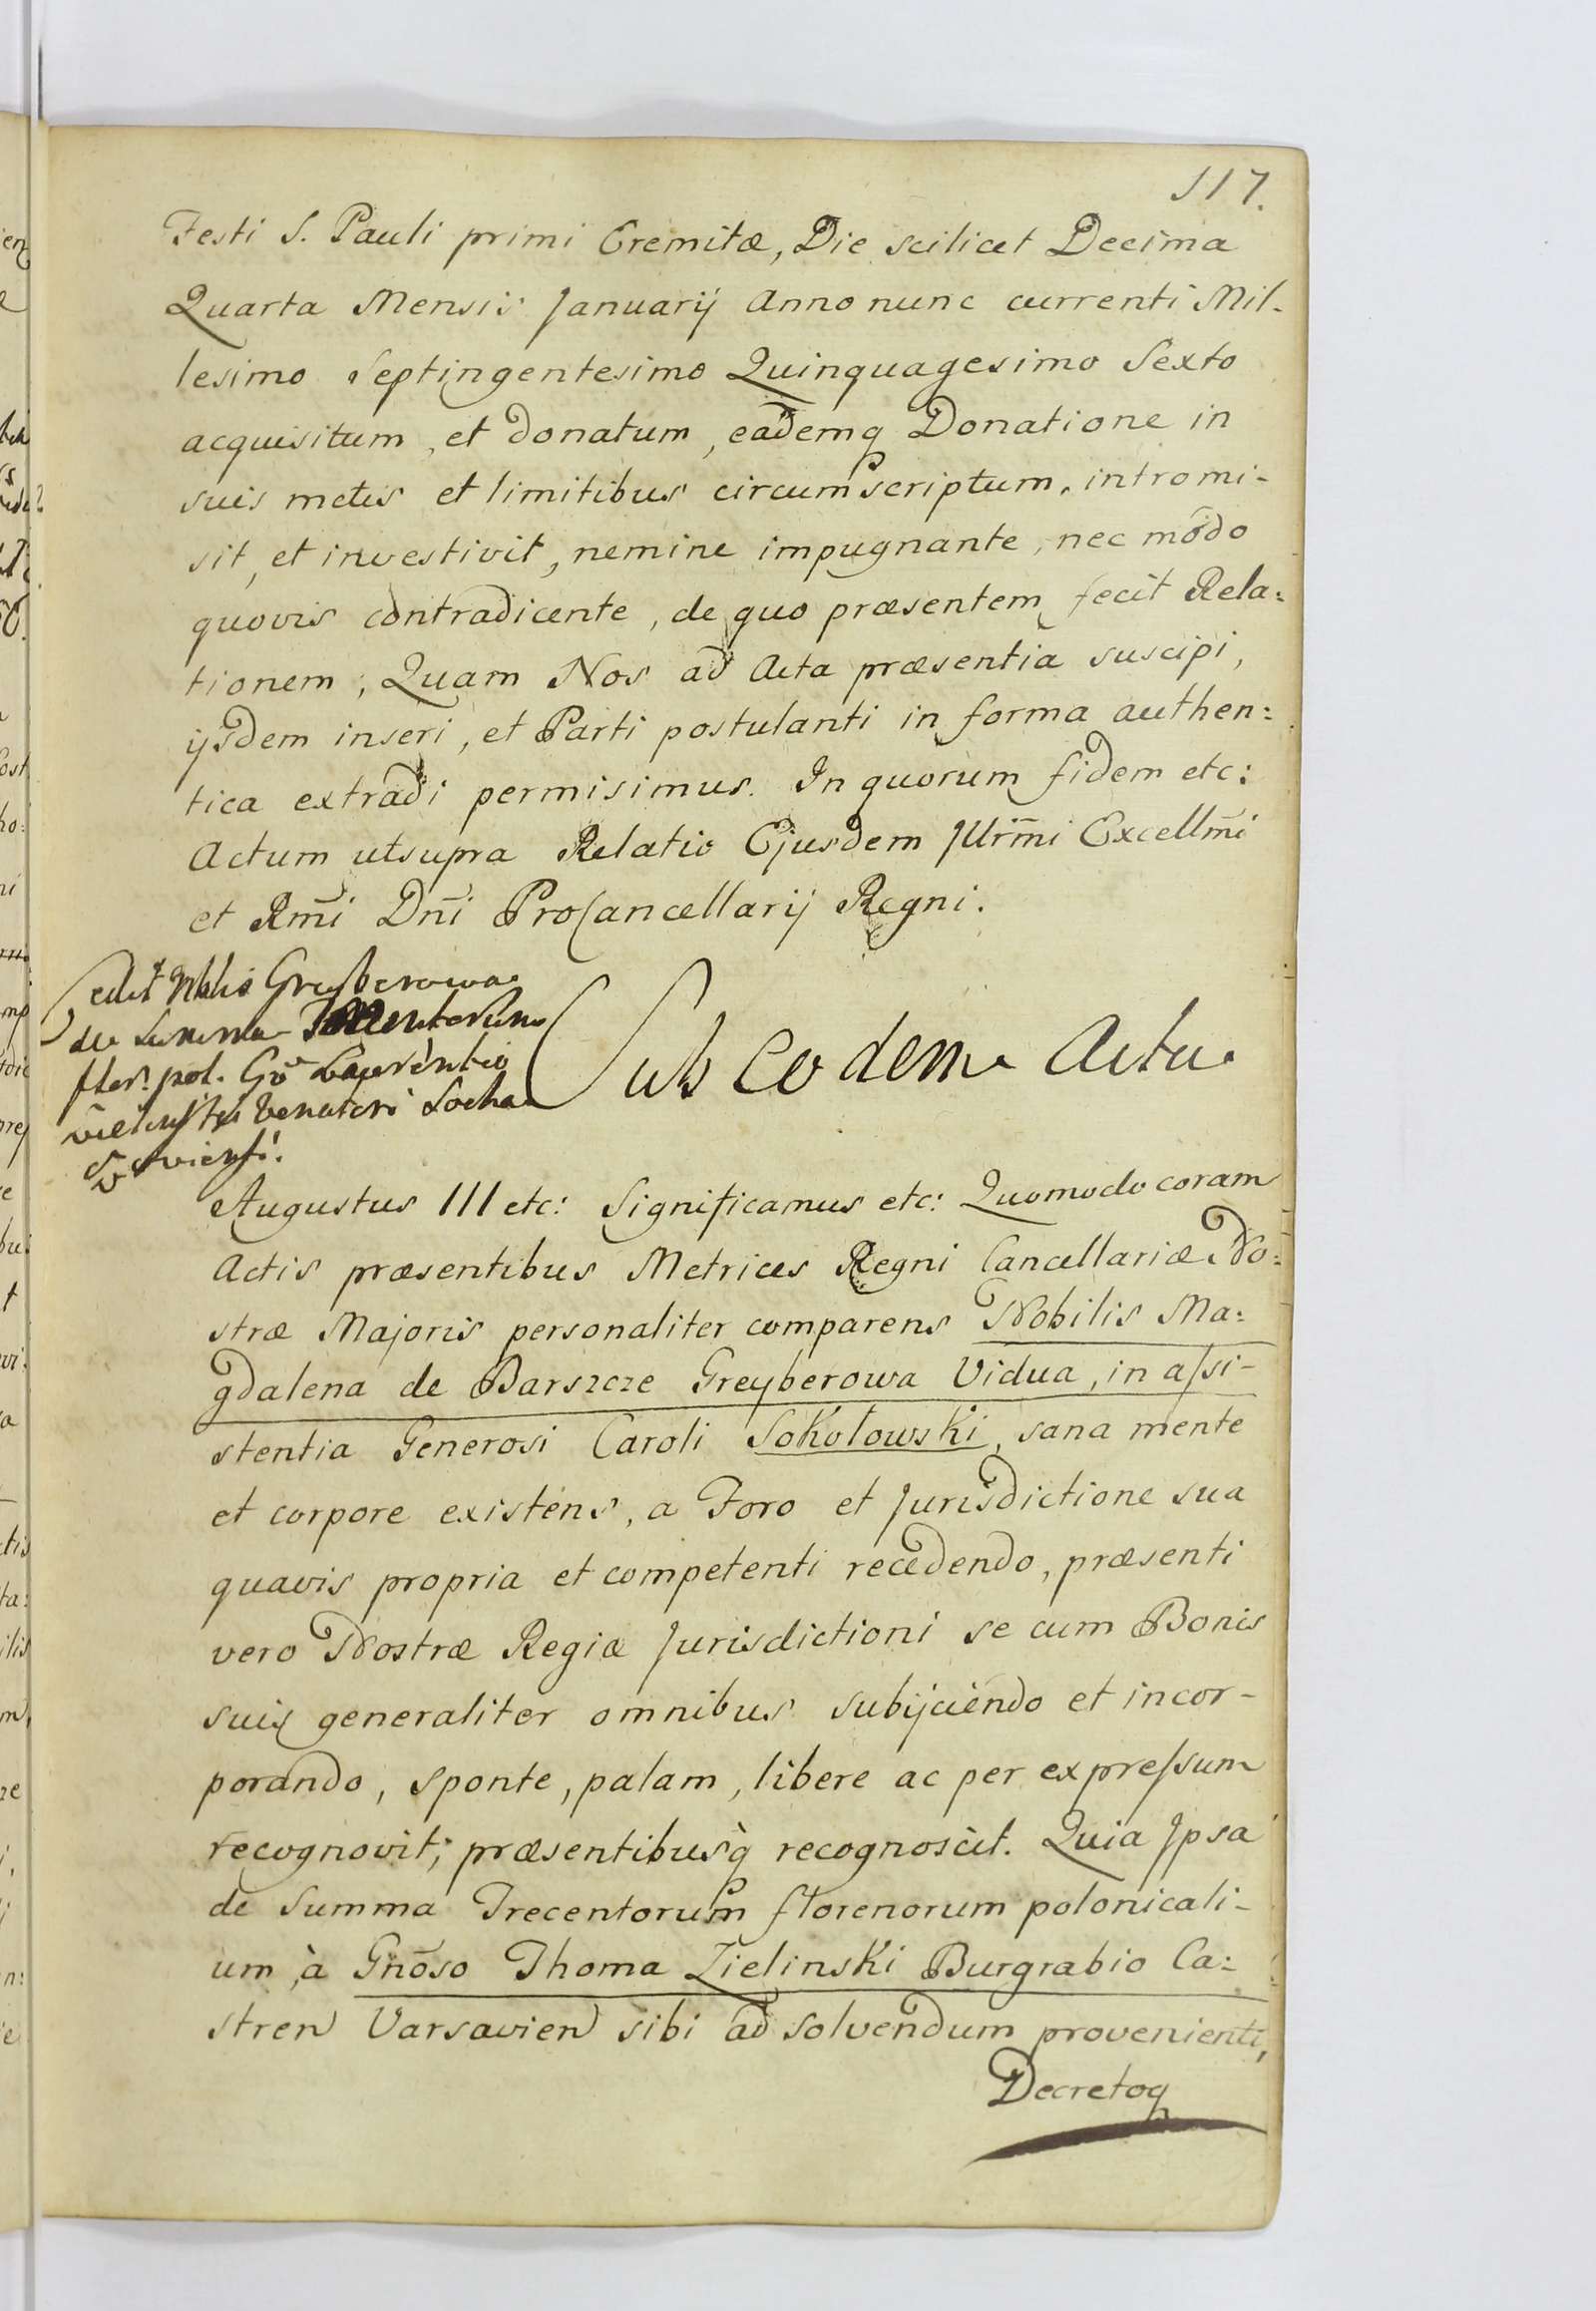 117.
Festi S. Pauli primi Eremitæ, Die scilicet Decima
Quarta Mensis Januarij Anno nunc currenti Mil-
lesimo Septingentesimo Quinquagesimo Sexto
acquisitum, et donatum, eademq Donatione in
suis metis et limitibus circumscriptum, intromi-
sit, et investivit, nemine impugnante, nec modo
quovis contradicente, de quo præsentem fecit Rela:
tionem; Quam Nos ad Acta præsentia suscipi,
ijsdem inseri, et Parti postulanti in forma authen:
tica extradi permisimus. In quorum fidem etc:
Actum utsupra Relatio Ejusdem Illrm̃i Excellm̃i
et Rm̃i Dñi ProCancellarij Regni.
Cedit Nblis Greyberowa
de Summa Trecentorum
flor: pol. Go Laurentio
Venatori Socha
Sub eodem Actu
Augustus III etc: Significamus etc: Quomodo coram
Actis præsentibus Metrices Regni Cancellariæ No:
stræ Majoris personaliter comparens Nobilis Ma:
gdalena de Barszcze Greyberowa Vidua, in assi-
stentia Generosi Caroli Sokołowski, sana mente
et corpore existens, a Foro et Jurisdictione sua
quavis propria et competenti recedendo, præsenti
vero Nostræ Regiæ Jurisdictioni se cum Bonis
suis generaliter omnibus subijciendo et incor-
porando, sponte, palam, libere ac per expressum
recognovit; præsentibusq̀ recognoscit. Quia Ipsa
de Summa Trecentorum florenorum polonicali-
um, à Gñoso Thoma Zielinski Burgrabio Ca:
stren Varsavien sibi ad solvendum provenienti,
Decretoq